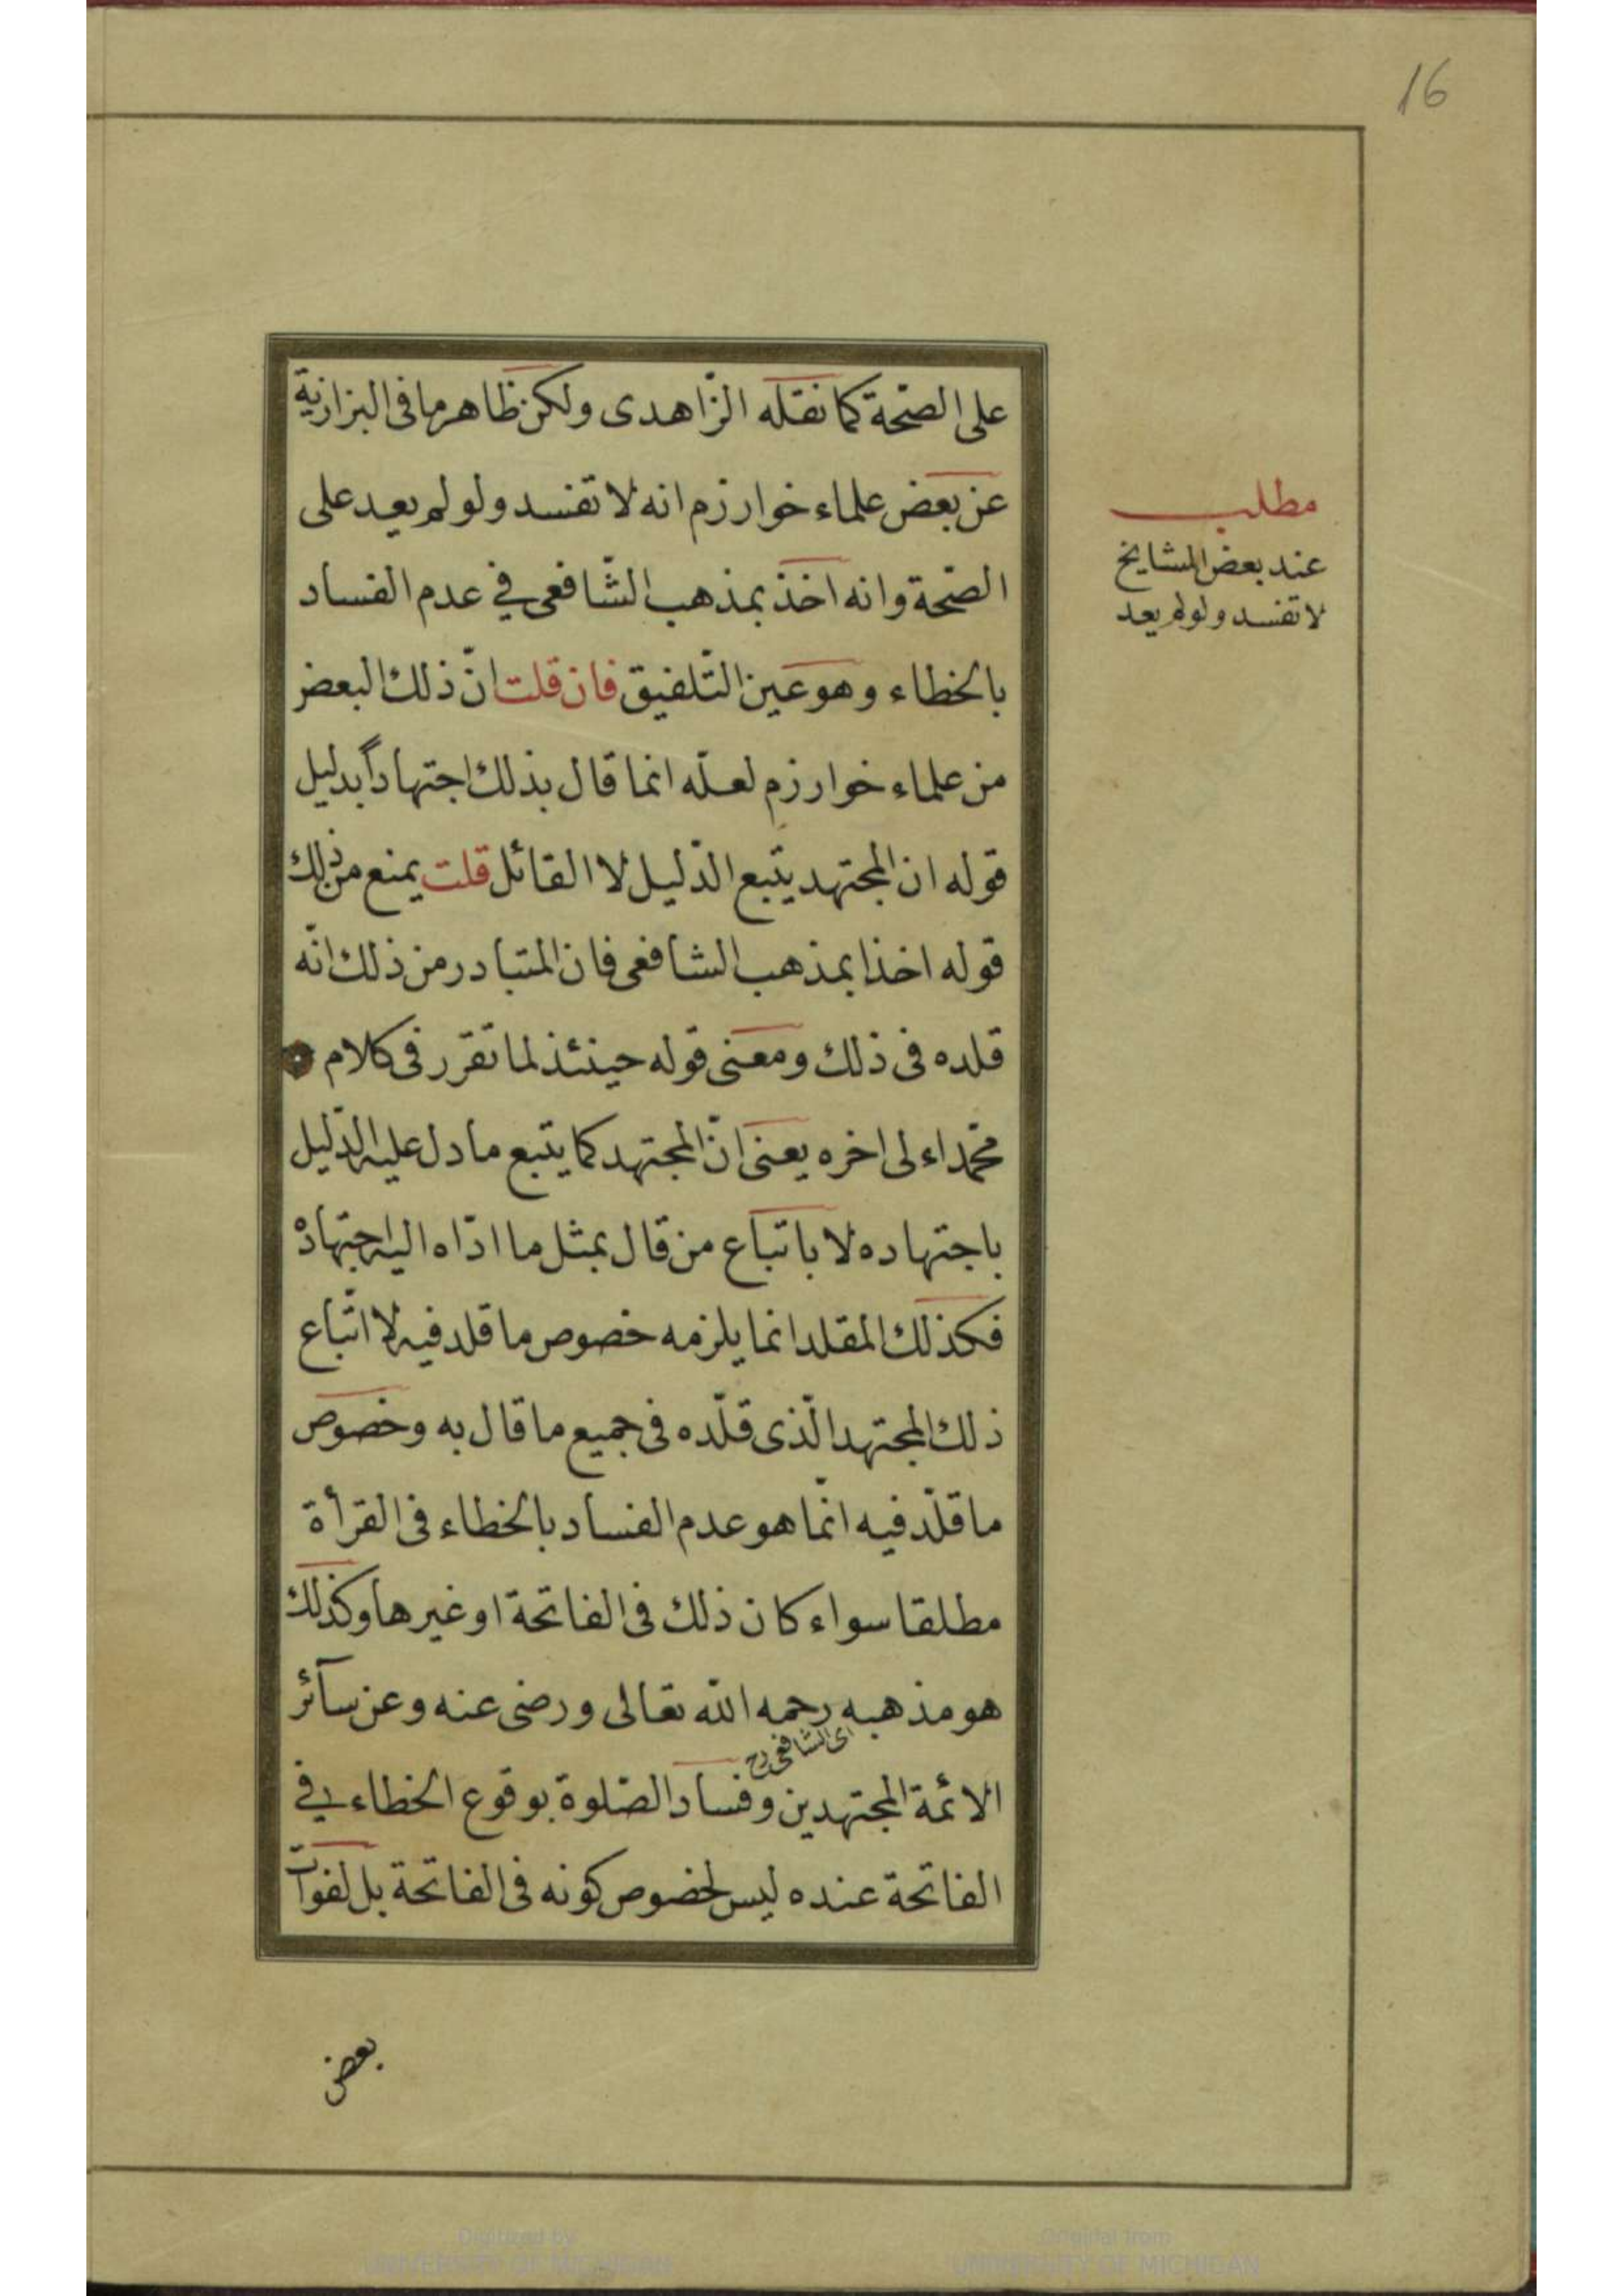 16
على الصّحة كما نقله الزّاهدى ولكن ظاهر ما فى البزازية
عن بعض علماء خوارزم انه لا تفسد ولو لم يعد على
الصّحة وانه اخذ بمذهب الشّافعى فى عدم الفساد
بالخطاء وهو عين التّلفيق فان قلت انّ ذلك البعض
من علماء خوارزم لعلّه انما قال بذلك اجتهاداً بدليل
قوله ان المجتهد يتّبع الدّليل لا القائل قلت يمنع من ذلك
قوله اخذا بمذهب الشافعى فان المتبادر من ذلك انّه
قلده فى ذلك ومعنى قوله حينئذ لما تقرر فى كلام
محمّد اء لى اخره يعنى انّ المجتهد كما يتّبع ما دل عليه الدّليل
باجتهاده لا باتّباع من قال بمثل ما ادّاه اليه اجتهاده
فكذلك المقلد انما يلزمه خصوص ما قلد فيه لا اتّباع
ذلك المجتهد الّذى قلّده فى جميع ما قال به وخصوص
ما قلّد فيه انّما هو عدم الفساد بالخطاء فى القرأة
مطلقا سواء كان ذلك فى الفاتحة او غيرها وكذلك
هو مذهبه رحمه الله تعالى ورضى عنه وعن سآئر
اى الشافعى رح
الائمة المجتهدين وفساد الصّلوة بوقوع الخطاء فى
الفاتحة عنده ليس لخصوص كونه فى الفاتحة بل لفوات
بعض
مطلب
عند بعض المشايخ
لا تفسد ولو لم يعد
Digitized by
UNIVERSITY OF MICHIGAN
Original from
UNIVERSITY OF MICHIGAN